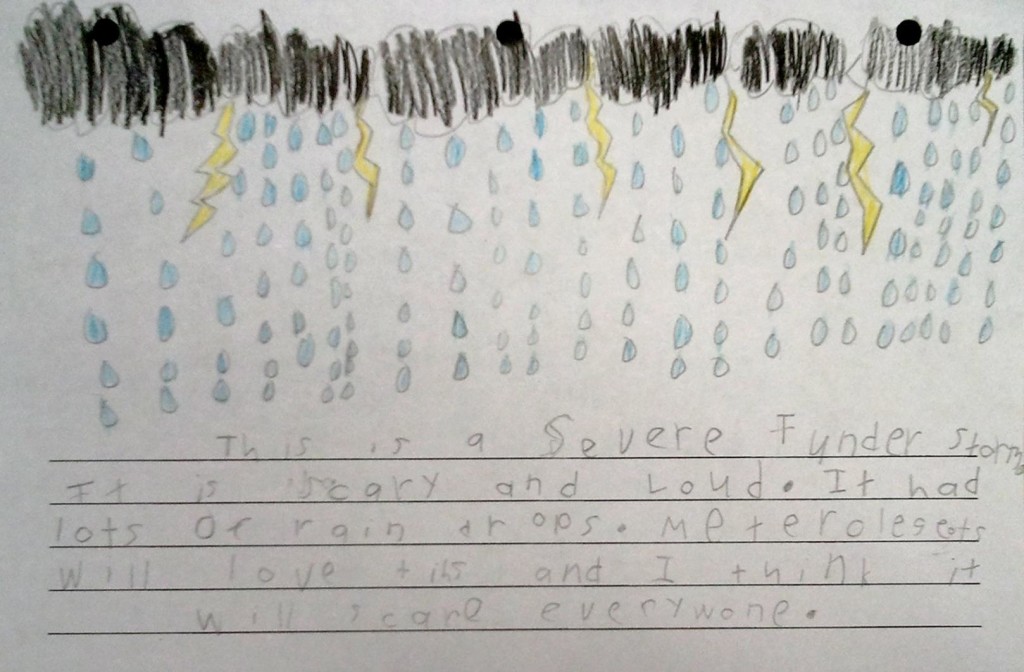 This is a Severe Funder storm
It is scary and Loud. It had
lots of rain drops. Meterolegests
will love this and I think it
will scare everywone.